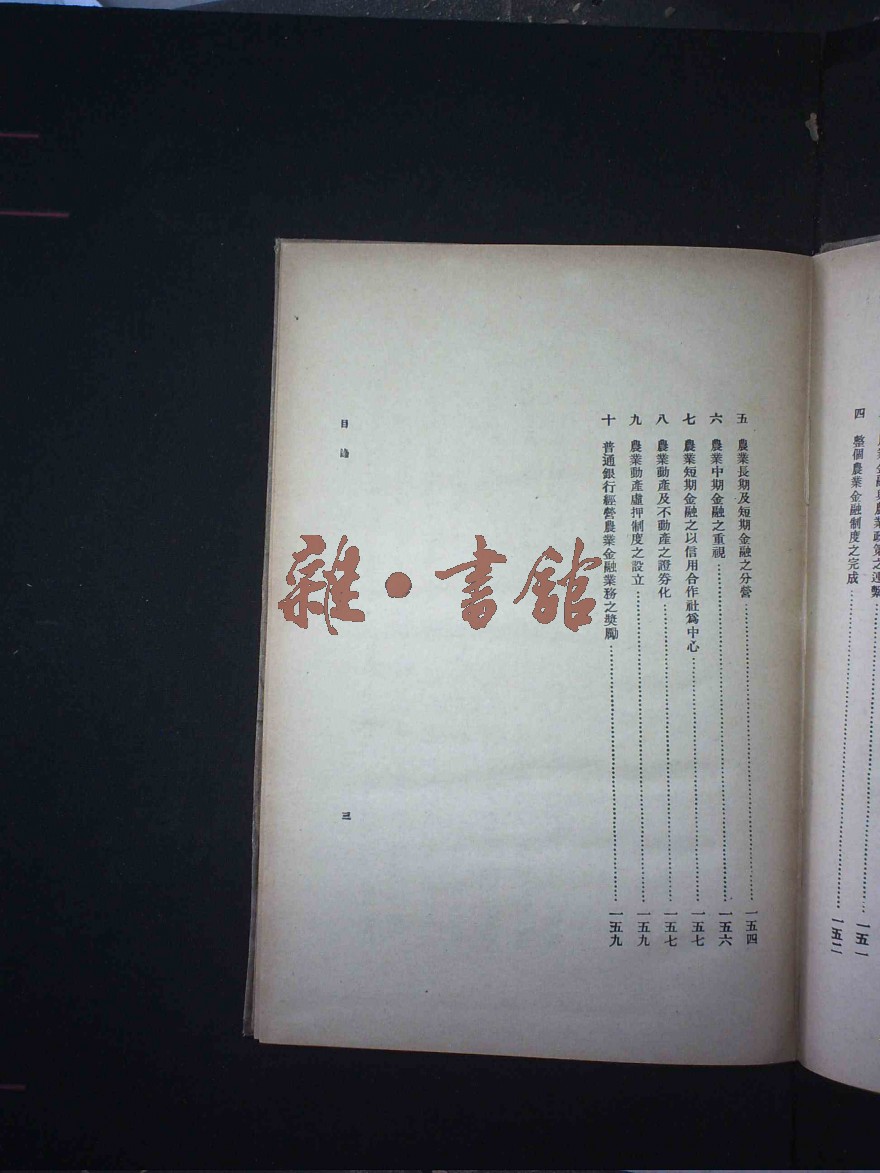 農業金融與農業政策之連繫……一五一
四　整個農業金融制度之完成……一五二
五　農業長期及短期金融之分營……一五四
六　農業中期金融之重視……一五六
七　農業短期金融之以信用合作社爲中心……一五七
八　農業動產及不動產之證券化……一五七
九　農業動產虛押制度之設立……一五九
十　普通銀行經營農業金融業務之奬勵……一五九
目
三
雜·書館